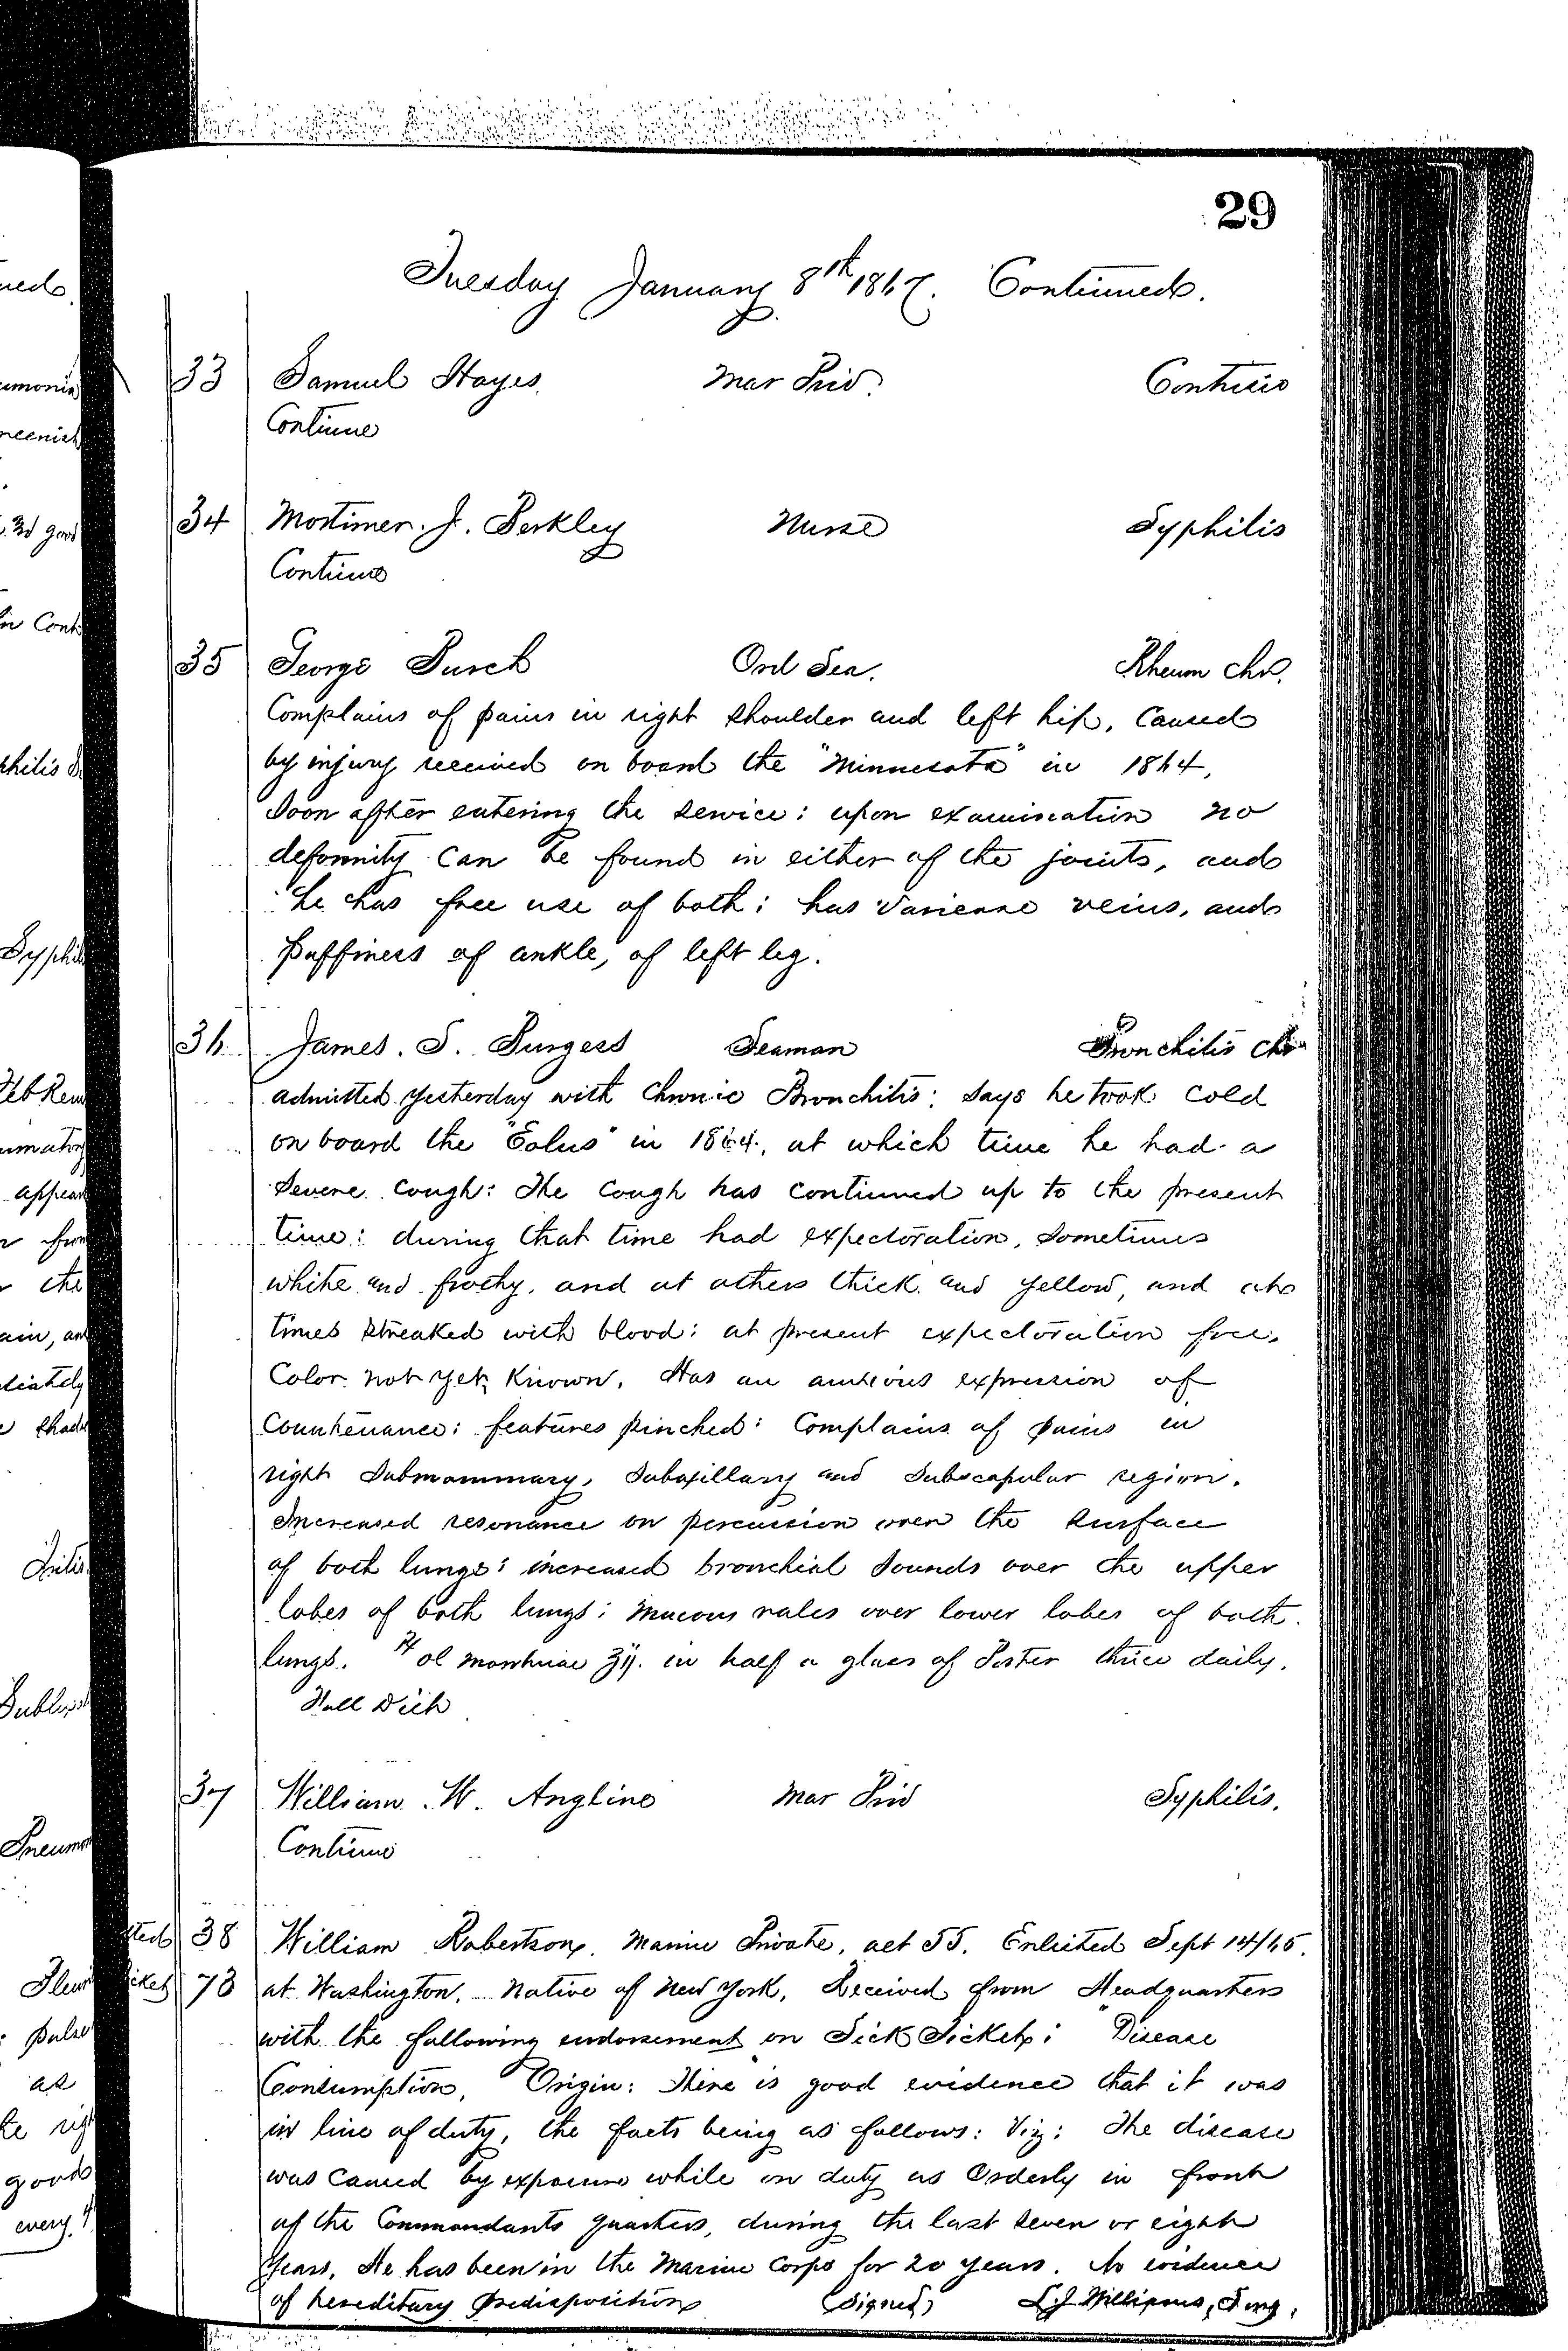 29
Tuesday January 8th 1867. Continued.
33 Samuel Hayes. Mar Priv. Contusio
Continue
34 Mortimer. J. Berkley Nurse Syphilis
Continue
35 George Burch Ord Sea. Rheum Chr.
Complains of pains in right shoulder and left hip, caused
by injury received on board the "Minnesota" in 1864,
soon after entering the service: upon examination no
deformity can be found in either of the joints, and
he has free use of both: has varicose veins, and
puffiness of ankle, of left leg.
36 James. S. Burgess Seaman Bronchitis Chr
admitted yesterday with Chronic Bronchitis: says he took cold
on board the "Eolus" in 1864, at which time he had a
severe cough: the cough has continued up to the present
time: during that time had expectoration, sometimes
white and frothy, and at others thick and yellow, and at
times streaked with blood: at present expectoration free,
Color not yet known. Has an anxious expression of
countenance: features pinched: Complains of pains in
right submammary, subaxillary and subscapular region.
Increased resonance on percussion over the surface
of both lungs: increased bronchial sounds over the upper
lobes of both lungs: mucous rales over lower lobes of both
lungs. ℞ ol morrhuae ʒij. in half a glass of Porter thrice daily.
Full Diet
37 William. W. Angline Mar Priv Syphilis.
Continue
38 William Robertson, Marine Private, aet 55. Enlisted Sept 14/65.
73 at Washington, Native of New York, Received from Headquarters
with the following endorsement on Sick Ticket: "Disease
Consumption, Origin: There is good evidence that it was
in line of duty, the facts being as follows: Viz: The disease
was caused by exposure while on duty as Orderly in front
of the Commandants quarters, during the last seven or eight
years, He has been in the Marine Corps for 20 years. No evidence
of hereditary predisposition (signed) Williams, Surg.